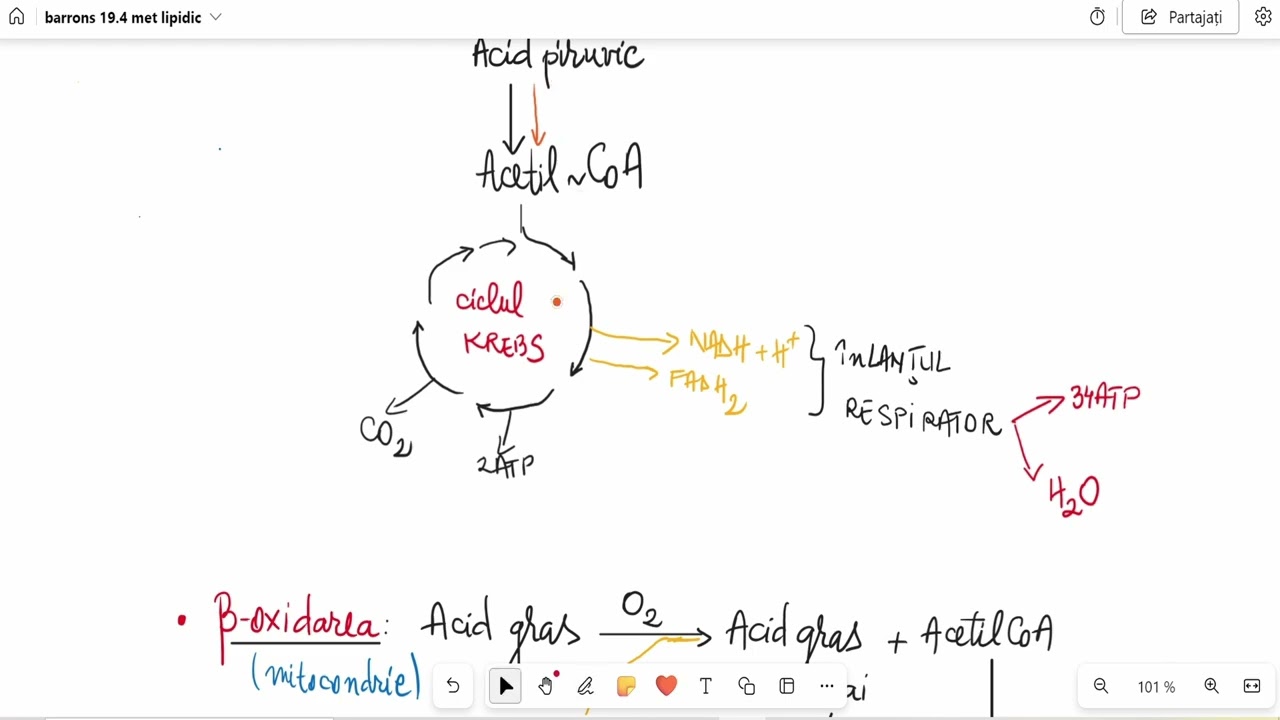 barrons 19.4 met lipidic
Partajați
Acid piruvic
Acetil~CoA
ciclul
KREBS
NADH + H+
FADH2
înLANȚUL
RESPIRATOR
34ATP
H2O
CO2
2ATP
• β-oxidarea: Acid gras O2 Acid gras + AcetilCoA
(mitocondrie)
T
ai
101 %